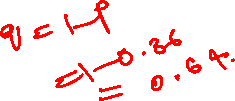 q = 1 - p
= 1 - 0.36
= 0.64.